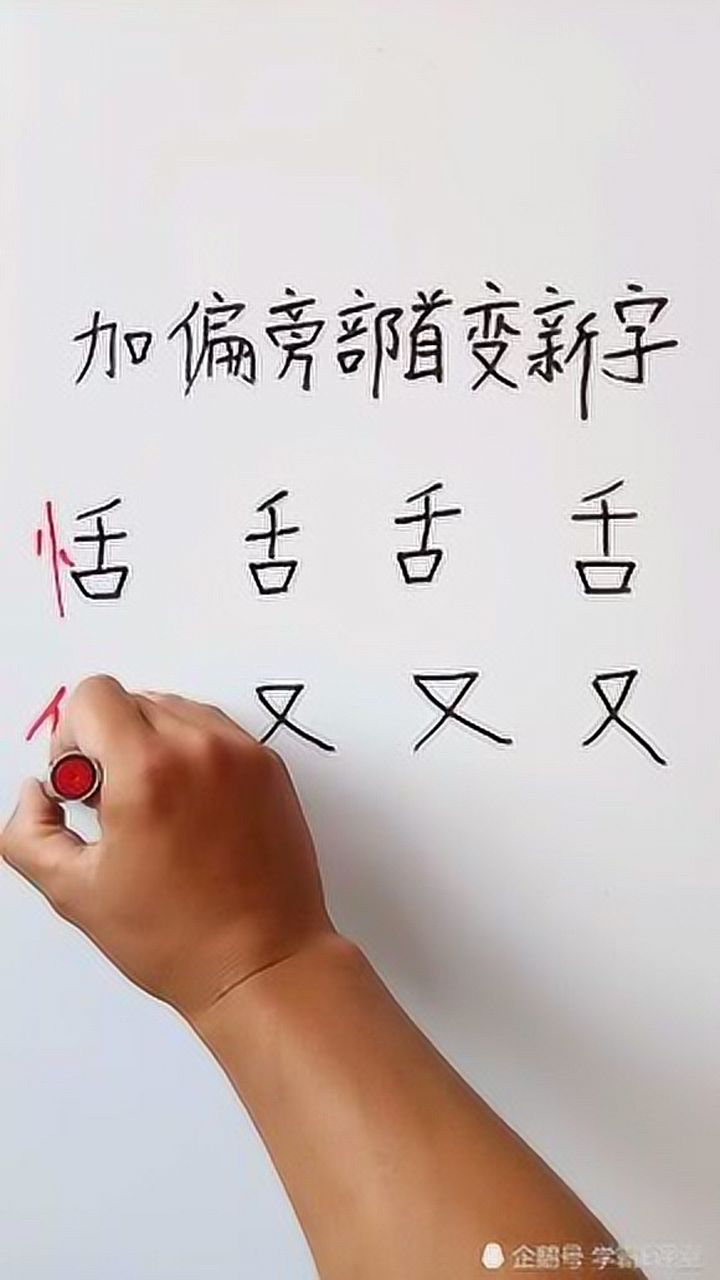 加偏旁部首变新字
恬 舌 舌 舌
亻 又 又 又
企鹅号 学霸